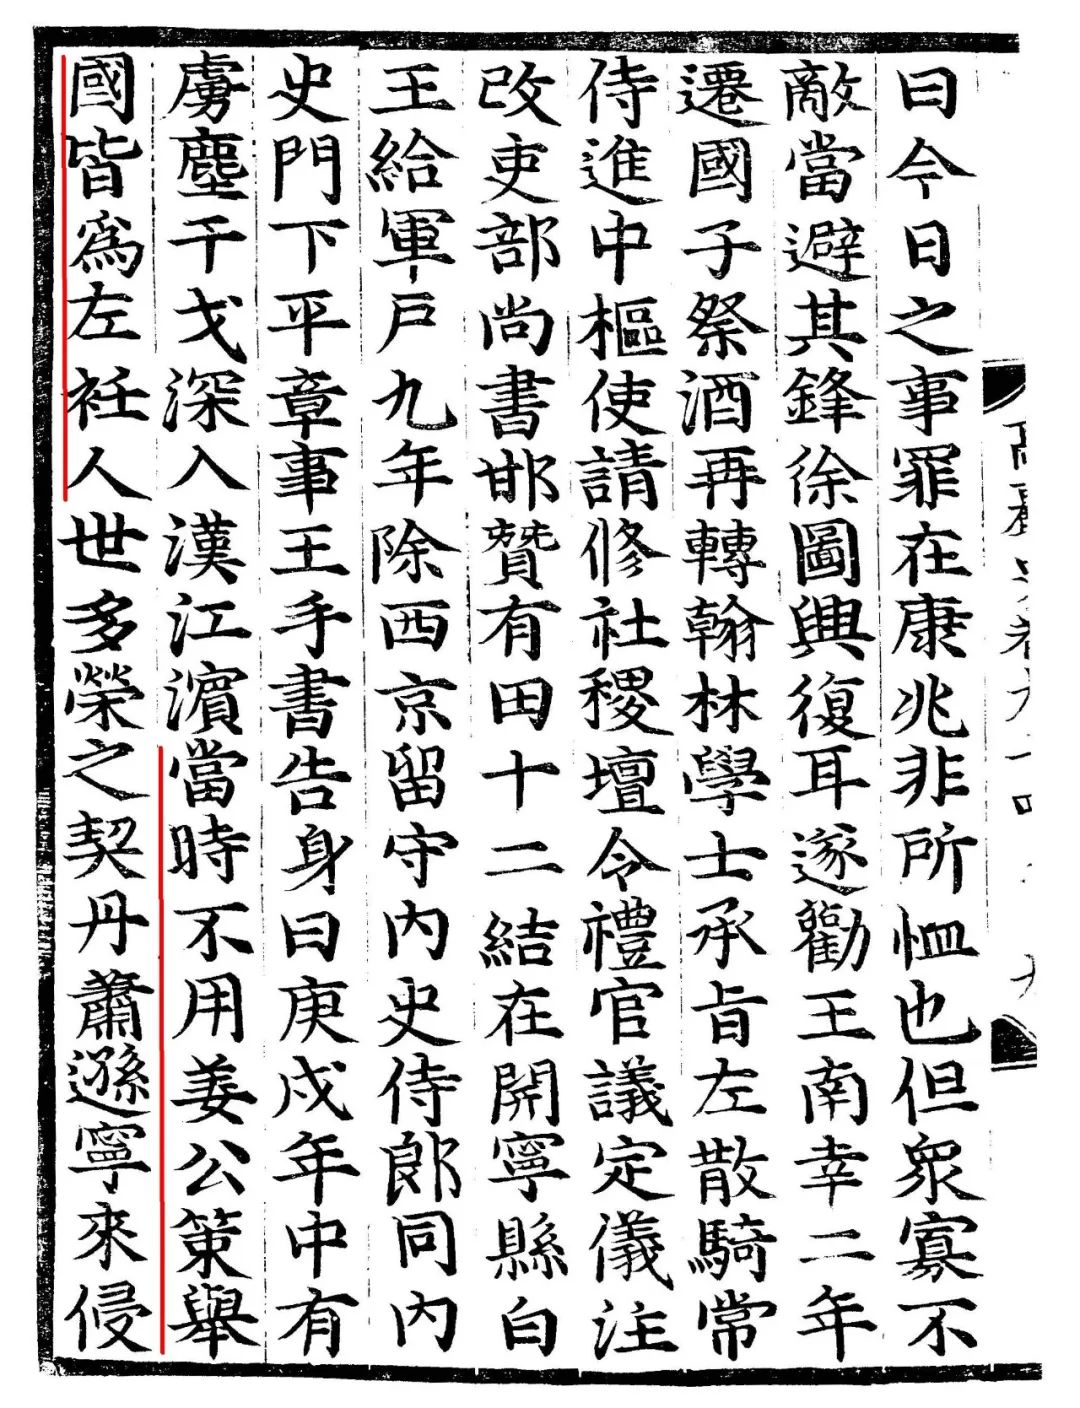 曰今日之事罪在康兆非所恤也但衆寡不
敵當避其鋒徐圖興復耳遂勸王南幸二年
遷國子祭酒再轉翰林學士承旨左散騎常
侍進中樞使請修社稷壇令禮官議定儀注
改吏部尚書邯贊有田十二結在開寧縣白
王給軍戶九年除西京留守內史侍郎同內
史門下平章事王手書告身曰庚戌年中有
虜塵干戈深入漢江濱當時不用姜公策舉
國皆爲左衽人世多榮之契丹蕭遜寧來侵